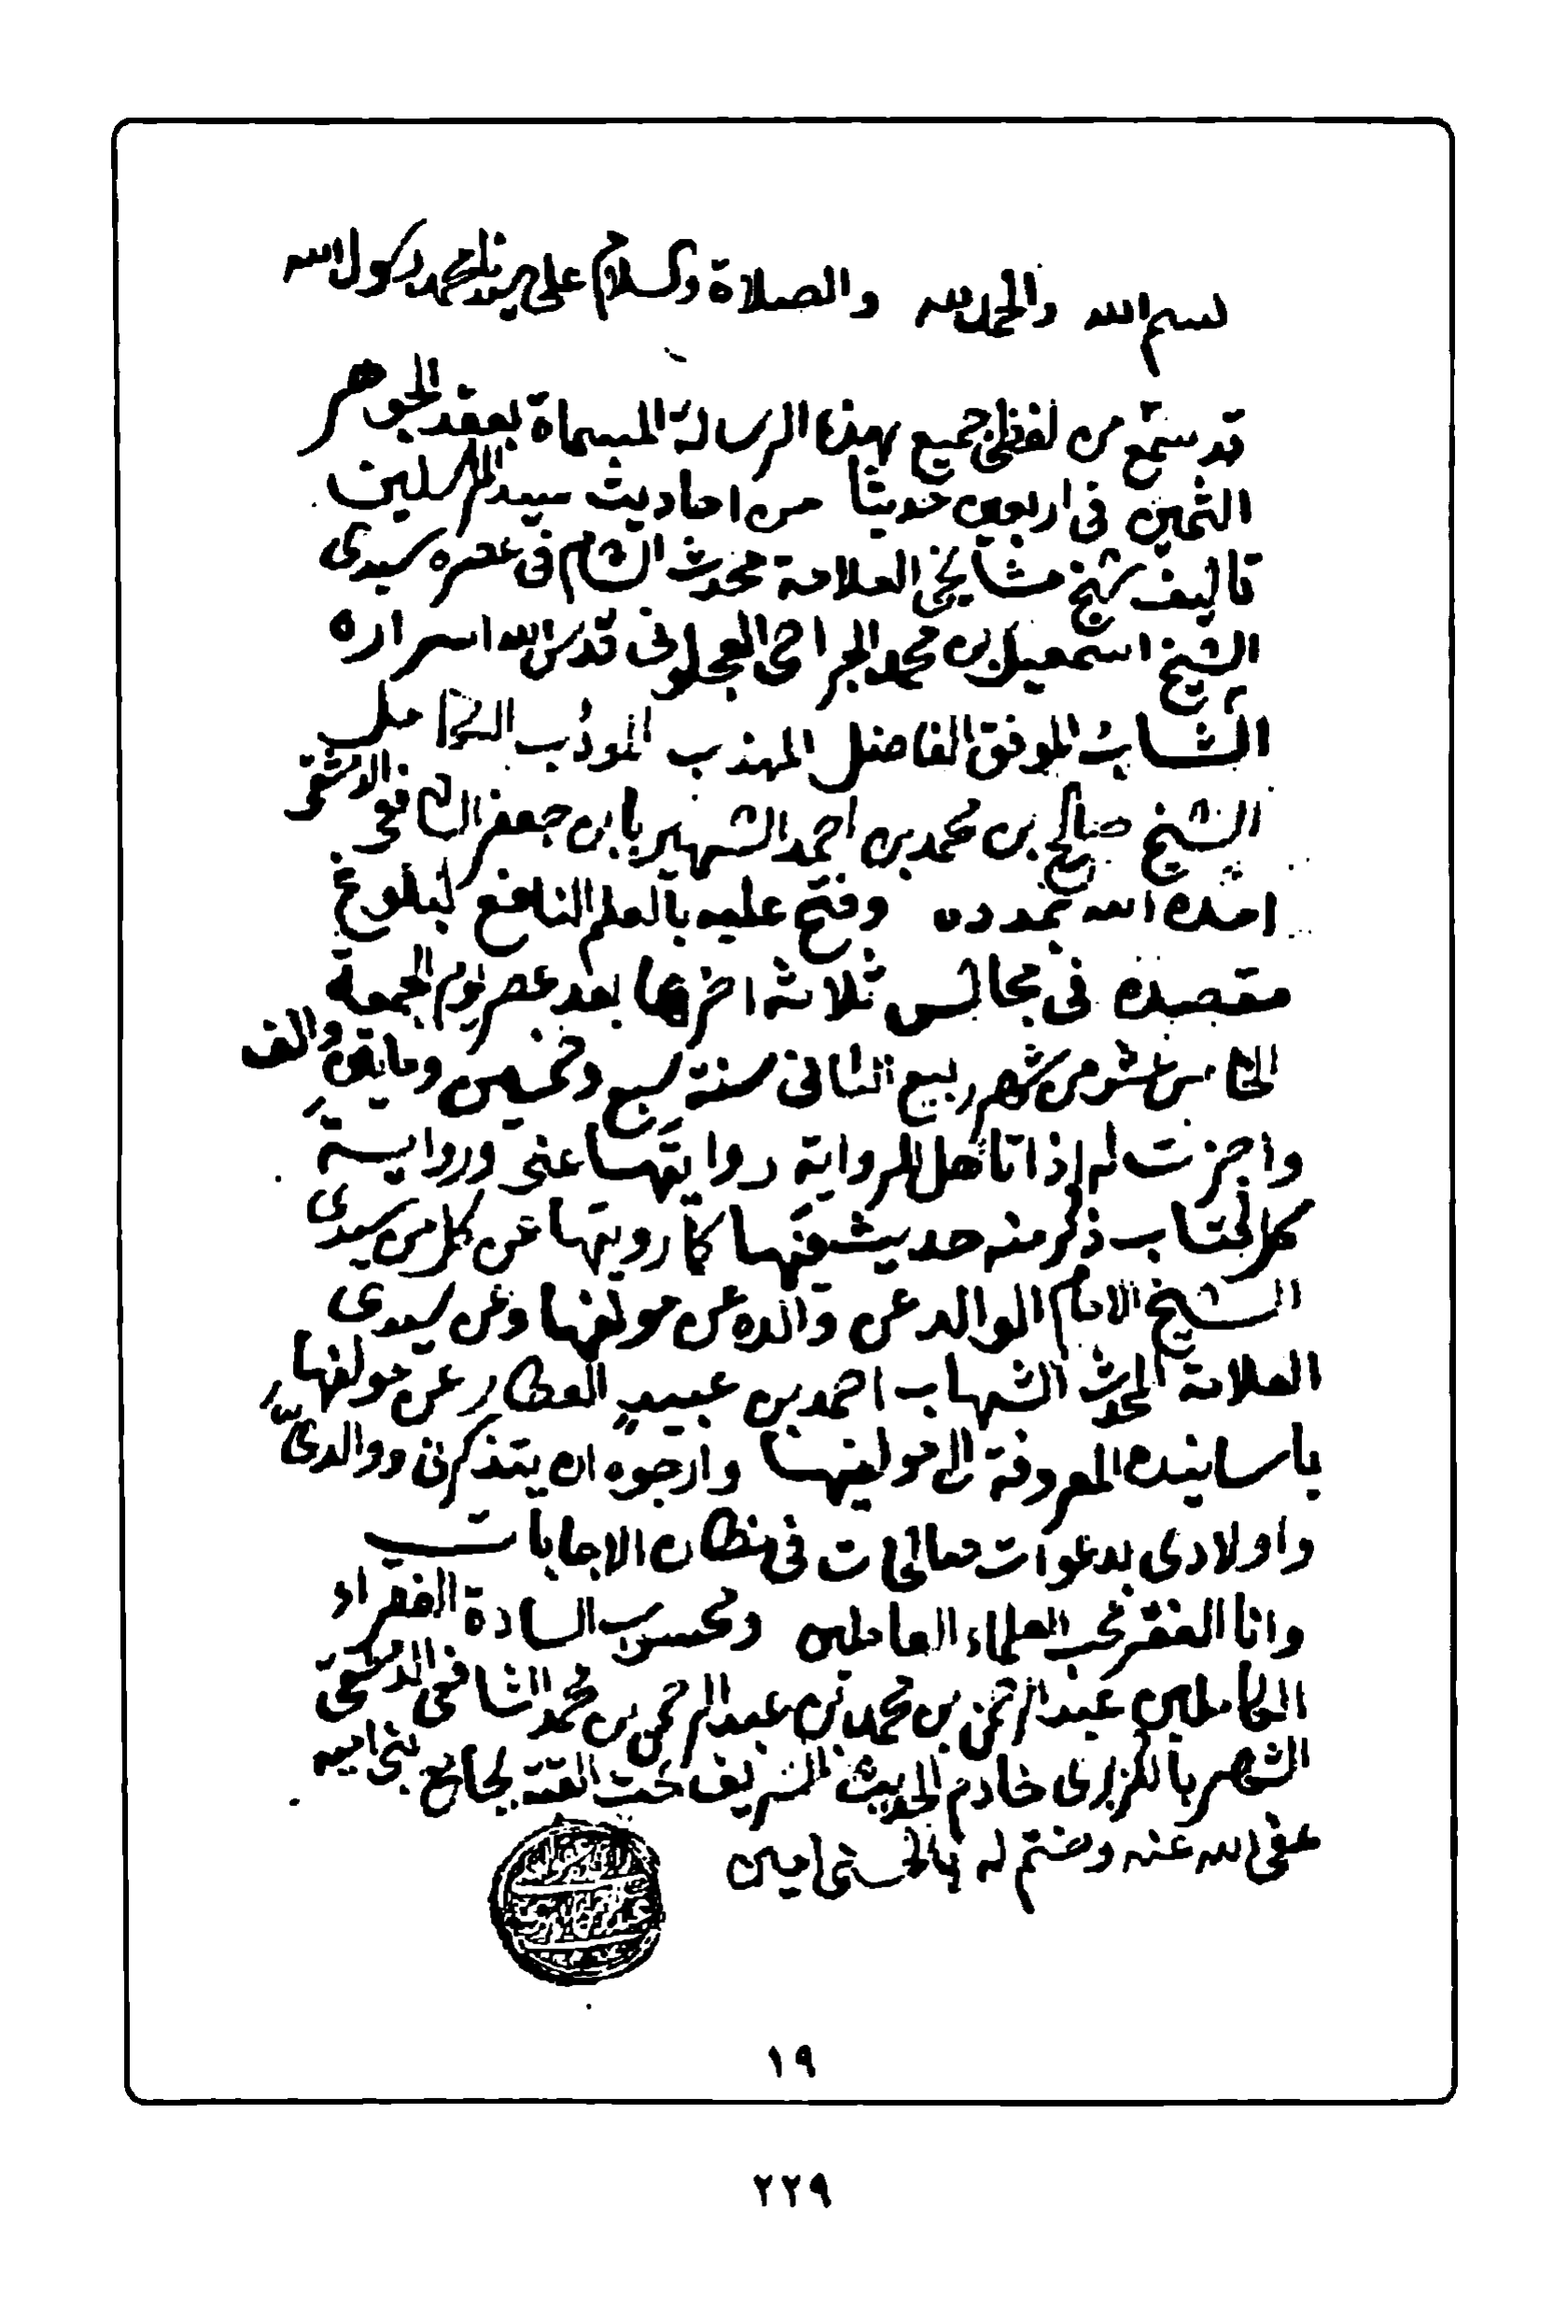 بسم الله والحمد لله والصلاة والسلام على سيدنا محمد رسول الله
قد سمع من لفظي جميع هذا الرسالة المسماة بعقد الجوهر
الثمين في اربعين حديثا من احاديث سيد المرسلين
تاليف شيخ مشايخي العلامة محدث الشام في عصره سيدي
الشيخ اسمعيل بن محمد الجراحي العجلوني قدس الله اسراره
الشاب الموفق الفاضل المهذب المودب الكامل
الشيخ صالح بن محمد بن احمد الشهير بابن جعفر الشافعي الدمشقي
امده الله بمدده وفتح عليه بالعلم النافع لبلوغ
مقصده في مجالس ثلاثة اخرها بعد عصر يوم الجمعة
الخامس عشر من شهر ربيع الثاني سنة سبع وخمسين ومايتين والف
واجزت له اذا تاهل للرواية روايتها عني ورواية
كل كتاب ذكر منه حديث فيها كما رويتها عن كل من سيدي
الشيخ الامام الوالد عن والده عن مولفها وعن سيدي
العلامة المحدث الشهاب احمد بن عبيد العطار عن مولفها
باسانيده المعروفة الى مولفيها وارجوه ان يتذكرني ووالديّ
واولادي بدعوات صالحات في مظان الاجابات
وانا الفقير محب العلماء العاملين ومحسوب السادة الفقراء
الكاملين عبد الرحمن بن محمد بن عبد الرحمن بن محمد الشافعي الدمشقي
الشهير بالكزبري خادم الحديث الشريف تحت القبة بجامع بني اميه
عفى الله عنه وختم له بالحسنى امين
١٩
٢٢٩